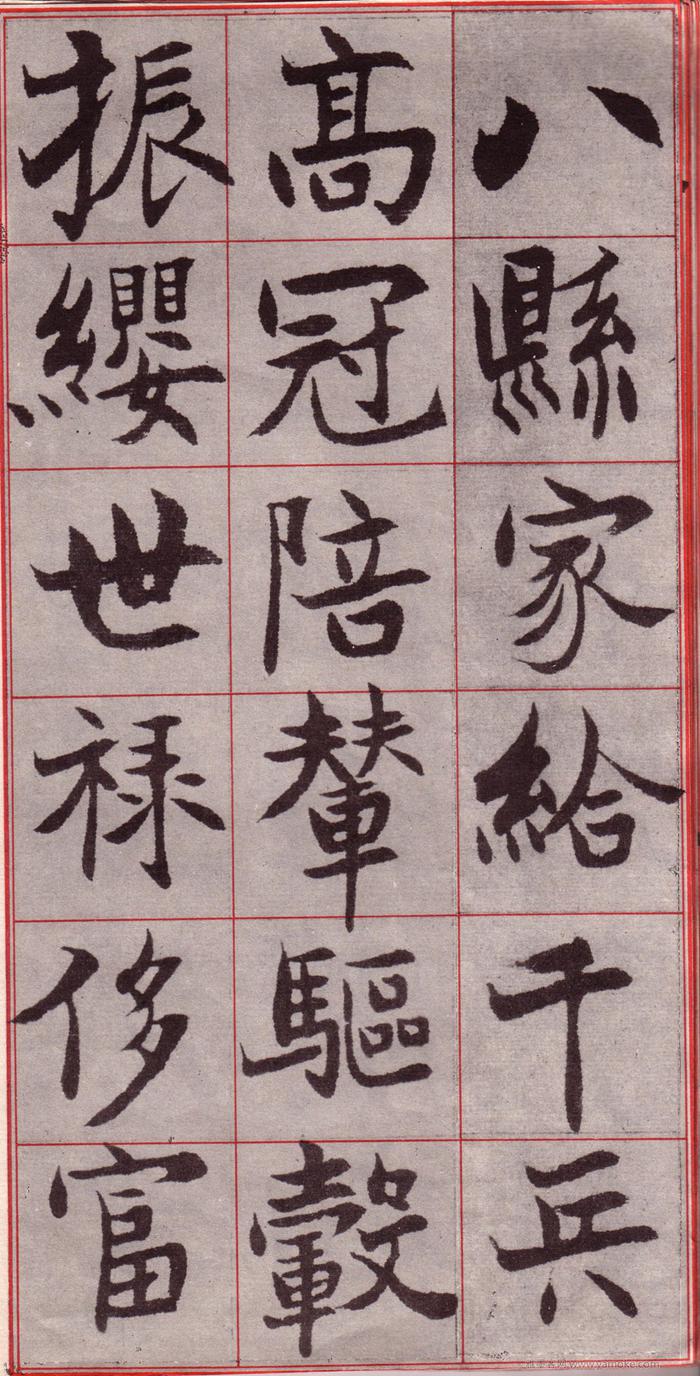 八縣家給千兵
高冠陪輦驅轂
振纓世禄侈富